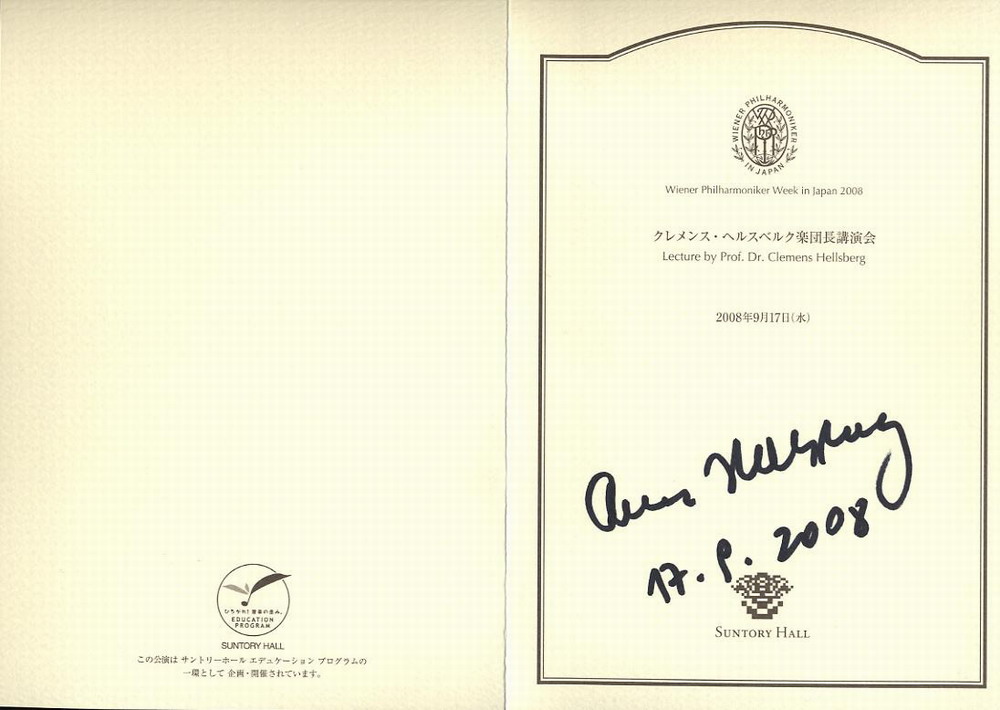 ひらかれ！音楽の歪み。
EDUCATION
PROGRAM
SUNTORY HALL
この公演は サントリーホール エデュケーション プログラムの
一環として 企画・開催されています。
WIENER PHILHARMONIKER
IN JAPAN
Wiener Philharmoniker Week in Japan 2008
クレメンス・ヘルスベルク楽団長講演会
Lecture by Prof. Dr. Clemens Hellsberg
2008年9月17日(水)
Clemens Hellsberg
17. 9. 2008
SUNTORY HALL